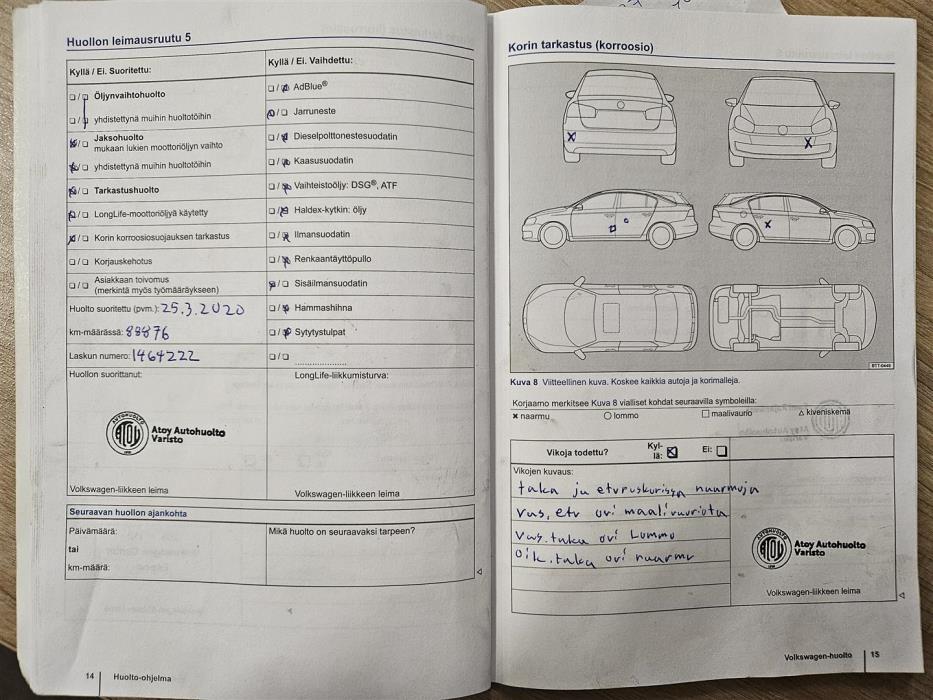 Huollon leimausruutu 5
Kyllä / Ei. Suoritettu:
☐ / ☐ Öljynvaihtohuolto
☐ / ☐ yhdistettynä muihin huoltotöihin
☒ / ☐ Jaksohuolto
mukaan lukien moottoriöljyn vaihto
☒ / ☐ yhdistettynä muihin huoltotöihin
☒ / ☐ Tarkastushuolto
☒ / ☐ LongLife-moottoriöljyä käytetty
☒ / ☐ Korin korroosiosuojauksen tarkastus
☐ / ☐ Korjauskehotus
☐ / ☐ Asiakkaan toivomus
(merkintä myös työmääräykseen)
Huolto suoritettu (pvm.): 25.3.2020
km-määrässä: 88876
Laskun numero: 1464222
Huollon suorittanut:
ATOY
Atoy Autohuolto
Varisto
Volkswagen-liikkeen leima
Kyllä / Ei. Vaihdettu:
☐ / ☒ AdBlue®
☒ / ☐ Jarruneste
☐ / ☒ Dieselpolttonestesuodatin
☐ / ☒ Kaasusuodatin
☐ / ☒ Vaihteistoöljy: DSG®, ATF
☐ / ☒ Haldex-kytkin: öljy
☐ / ☒ Ilmansuodatin
☐ / ☒ Renkaantäyttöpullo
☒ / ☐ Sisäilmansuodatin
☐ / ☒ Hammashihna
☐ / ☒ Sytytystulpat
☐ / ☐
LongLife-liikkumisturva:
Volkswagen-liikkeen leima
Seuraavan huollon ajankohta
Päivämäärä:
tai
km-määrä:
Mikä huolto on seuraavaksi tarpeen?
14 Huolto-ohjelma
Korin tarkastus (korroosio)
BTT-0449
Kuva 8 Viitteellinen kuva. Koskee kaikkia autoja ja korimalleja.
Korjaamo merkitsee Kuva 8 vialliset kohdat seuraavilla symboleilla:
✖ naarmu ○ lommo ☐ maalivaurio △ kiveniskemä
Vikoja todettu? Kyl-
lä: ☒ Ei: ☐
Vikojen kuvaus:
taka ja etupuskurissa naarmuja
vas. etu ovi maalivauriota
vas. taka ovi Lommo
oik. taka ovi naarmu
ATOY
Atoy Autohuolto
Varisto
Volkswagen-liikkeen leima
Volkswagen-huolto 15